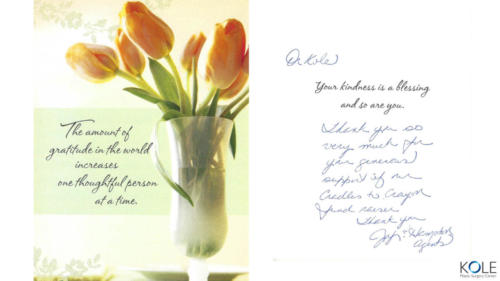 The amount of
gratitude in the world
increases
one thoughtful person
at a time.
Dr Kole
Your kindness is a blessing
and so are you.
Thank you so
very much for
your generous
support of our
Cradles to Crayons
fund raiser
Thank you
Agents
KOLE
Plastic Surgery Center